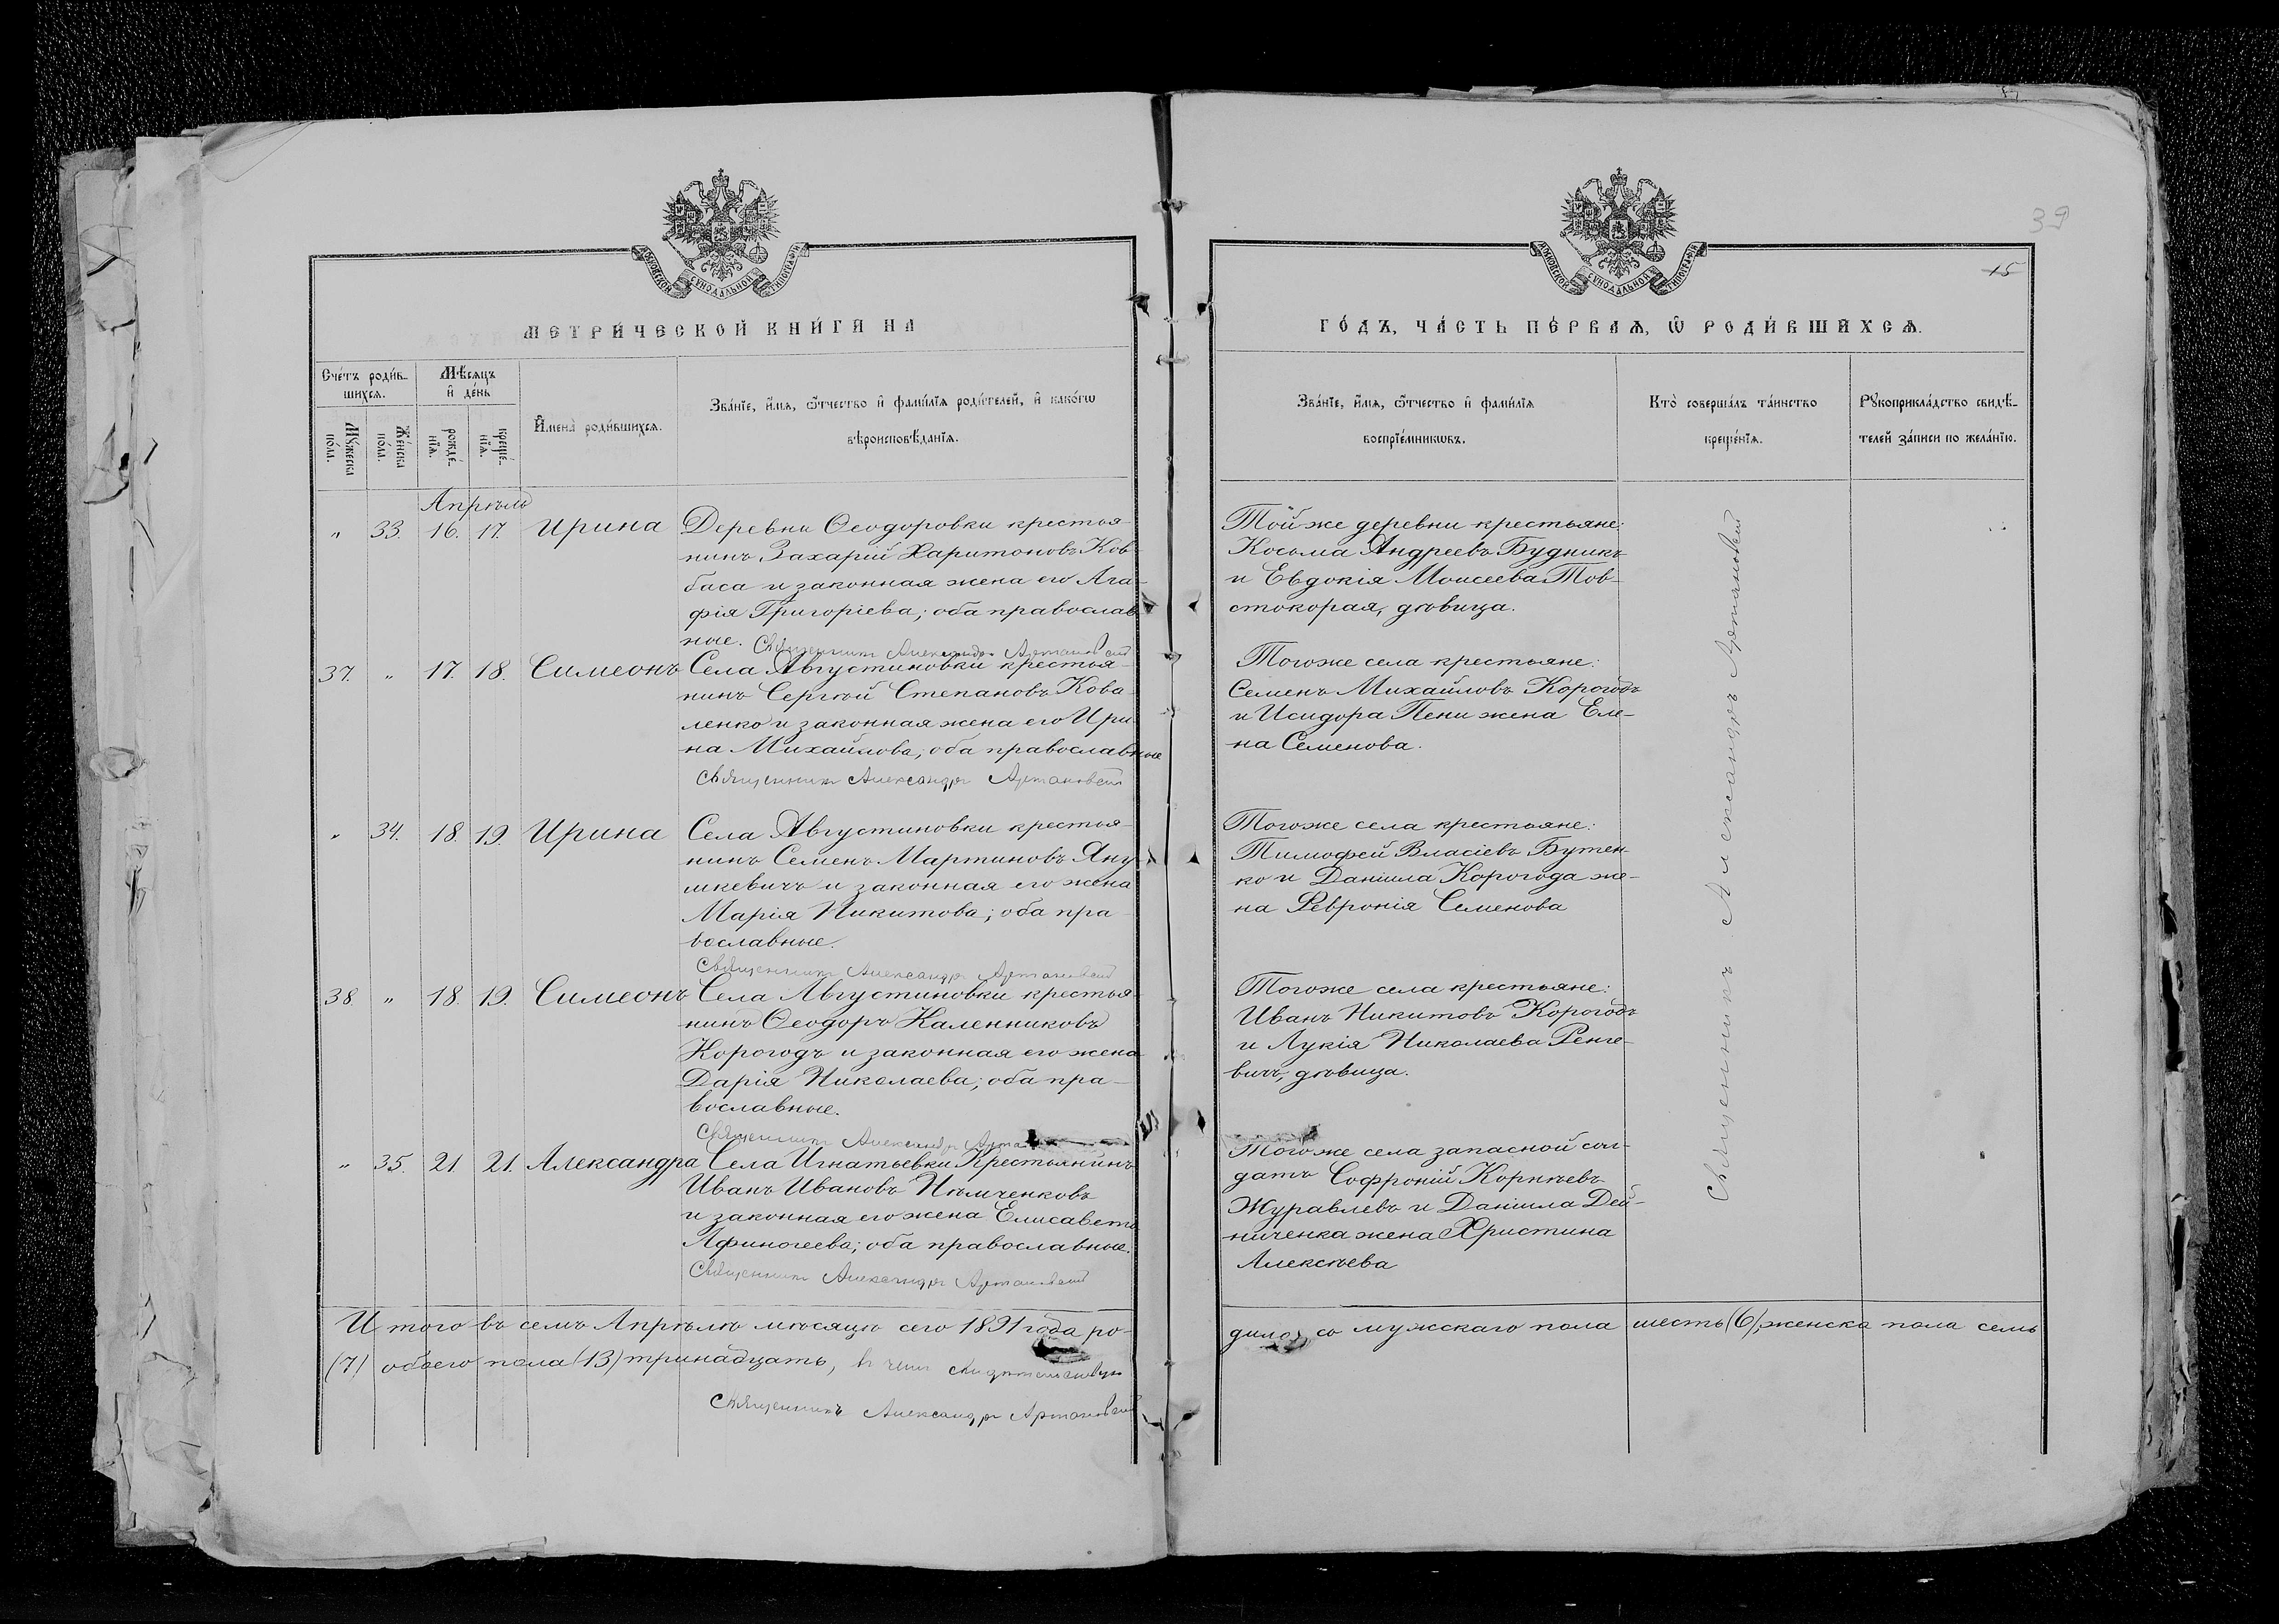 МОСКОВСКОЙ СѴНОДАЛЬНОЙ ТИПОГРАФІИ
МЕТРИ́ЧЕСКОЙ КНИ́ГИ НА
Сче́тъ роди́в-
шихся.
Мѣ́сяцъ
и҆ де́нь
Му́жеска
по́ла.
Же́нска
по́ла.
рожде́-
нїя.
креще́-
нїя.
И҆мена̀ роди́вшихся.
Зва́нїе, и҆́мя, ѻ҆́тчество и҆ фами́лїя роди́телей, и҆ како́гѡ
вѣроисповѣ́данїя.
Апрѣль
„ 33. 16. 17. Ирина Деревни Ѳеодоровки крестья-
нинъ Захарій Харитоновъ Ков-
баса и законная жена его Ага-
фія Григоріева; оба православ-
ные. Священникъ Александръ Артановскій
37. „ 17. 18. Симеонъ Села Августиновки крестья-
нинъ Сергѣй Степановъ Кова-
ленко и законная жена его Ири-
на Михайлова; оба православные
Священникъ Александръ Артановскій
„ 34. 18. 19. Ирина Села Августиновки крестья-
нинъ Семенъ Мартиновъ Яну-
шкевичъ и законная его жена
Марія Никитова; оба пра-
вославные.
Священникъ Александръ Артановскій
38. „ 18. 19. Симеонъ Села Августиновки крестья-
нинъ Ѳеодоръ Каленниковъ
Корогодъ и законная его жена
Дарія Николаева; оба пра-
вославные.
Священникъ Александръ
„ 35. 21 21. Александра Села Игнатьевки Крестьянинъ
Иванъ Ивановъ Нѣмченковъ
и законная его жена Елисавета
Афиногеева; оба православные.
Священникъ Александръ Артановскій
Итого въ семъ Апрѣлѣ мѣсяцѣ сего 1891 года ро-
(7) обоего пола (13) тринадцать, въ чемъ свидѣтельствую
Священникъ Александръ Артановскій
39
15
МОСКОВСКОЙ СѴНОДАЛЬНОЙ ТИПОГРАФІИ
ГО́ДЪ, ЧА́СТЬ ПЕ́РВАЯ, Ѽ РОДИ́ВШИХСЯ.
Зва́нїе, и҆́мя, ѻ҆́тчество и҆ фами́лїя
воспрїе́мникѡвъ.
Кто̀ соверша́лъ та́инство
креще́нїя.
Рꙋкоприкла́дство свидѣ́-
телей за́писи по жела́нїю.
Той же деревни крестьяне:
Косьма Андреевъ Будникъ
и Евдокія Моисеева Тов-
стокорая, дѣвица.
Того же села крестьяне:
Семенъ Михайловъ Корогодъ
и Исидора Пени жена Еле-
на Семенова.
Того же села крестьяне:
Тимофей Власіевъ Бутен-
ко и Даніила Корогода же-
на Февронія Семенова
Того же села крестьяне:
Иванъ Никитовъ Корогодъ
и Лукія Николаева Ренге-
вичъ, дѣвица.
Того же села запасной сол-
датъ Софроній Корнѣевъ
Журавлевъ и Даніила Дей-
ниченка жена Христина
Алексѣева
Священникъ Александръ Артановскій
дилось мужскаго пола шесть (6), женска пола семь